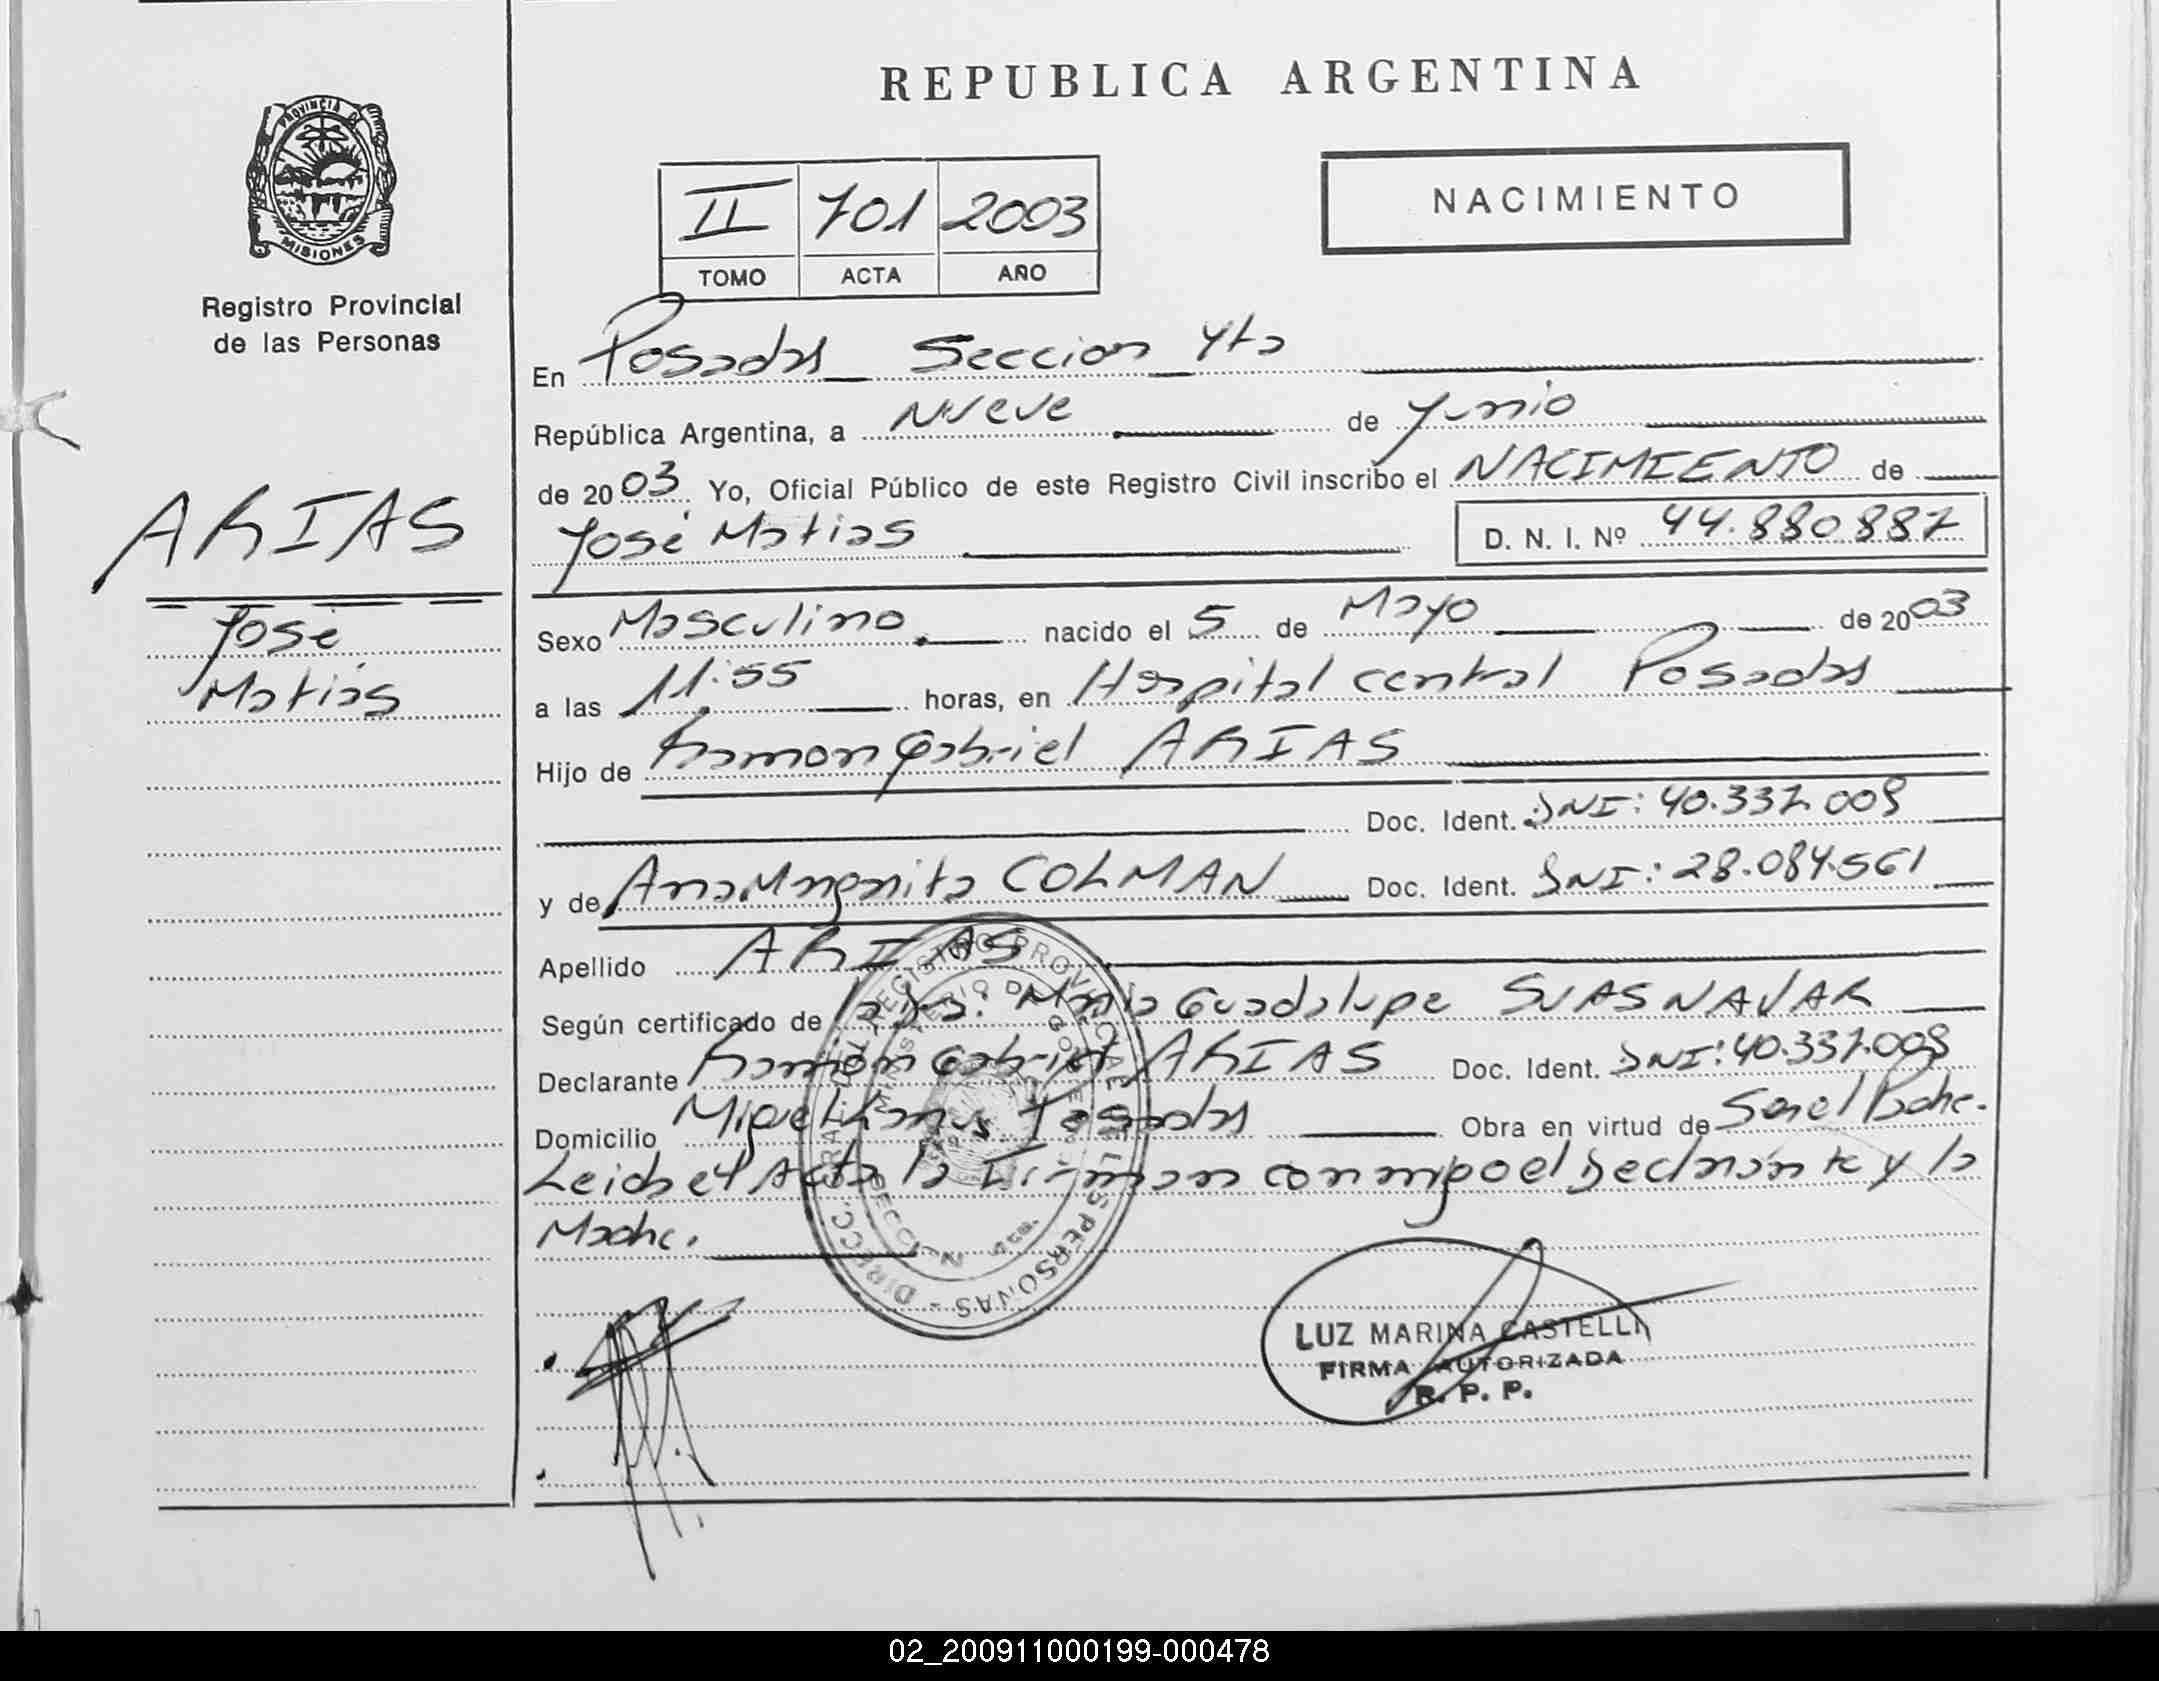 REPUBLICA ARGENTINA
PROVINCIA DE
MISIONES
Registro Provincial
de las Personas
II 701 2003
TOMO ACTA AÑO
NACIMIENTO
ARIAS
José
Matias
En Posadas Seccion 4ta
República Argentina, a Nueve de Junio
de 2003. Yo, Oficial Público de este Registro Civil inscribo el NACIMIENTO de
José Matias D. N. I. Nº 44.880.887
Sexo Masculino. nacido el 5 de Mayo de 2003
a las 11:55 horas, en Hospital central Posadas
Hijo de Ramon Gabriel ARIAS
Doc. Ident. DNI: 40.337.009
y de Ana Margarita COLMAN Doc. Ident. DNI: 28.084.561
Apellido ARIAS
Según certificado de la Dra. Maria Guadalupe SUASNAVAR
Declarante Ramón Gabriel ARIAS Doc. Ident. DNI: 40.337.009
Domicilio Miguel Posadas Obra en virtud de Ser el Padre.
Leida el Acta la Firman conmigo el Declarante y la
Madre.
DIRECC. GRAL. DEL REGISTRO PROVINCIAL DE LAS PERSONAS -
MINISTERIO DE GOBIERNO
SECCION 4ta.
LUZ MARINA CASTELLI
FIRMA AUTORIZADA
R. P. P.
02_200911000199-000478